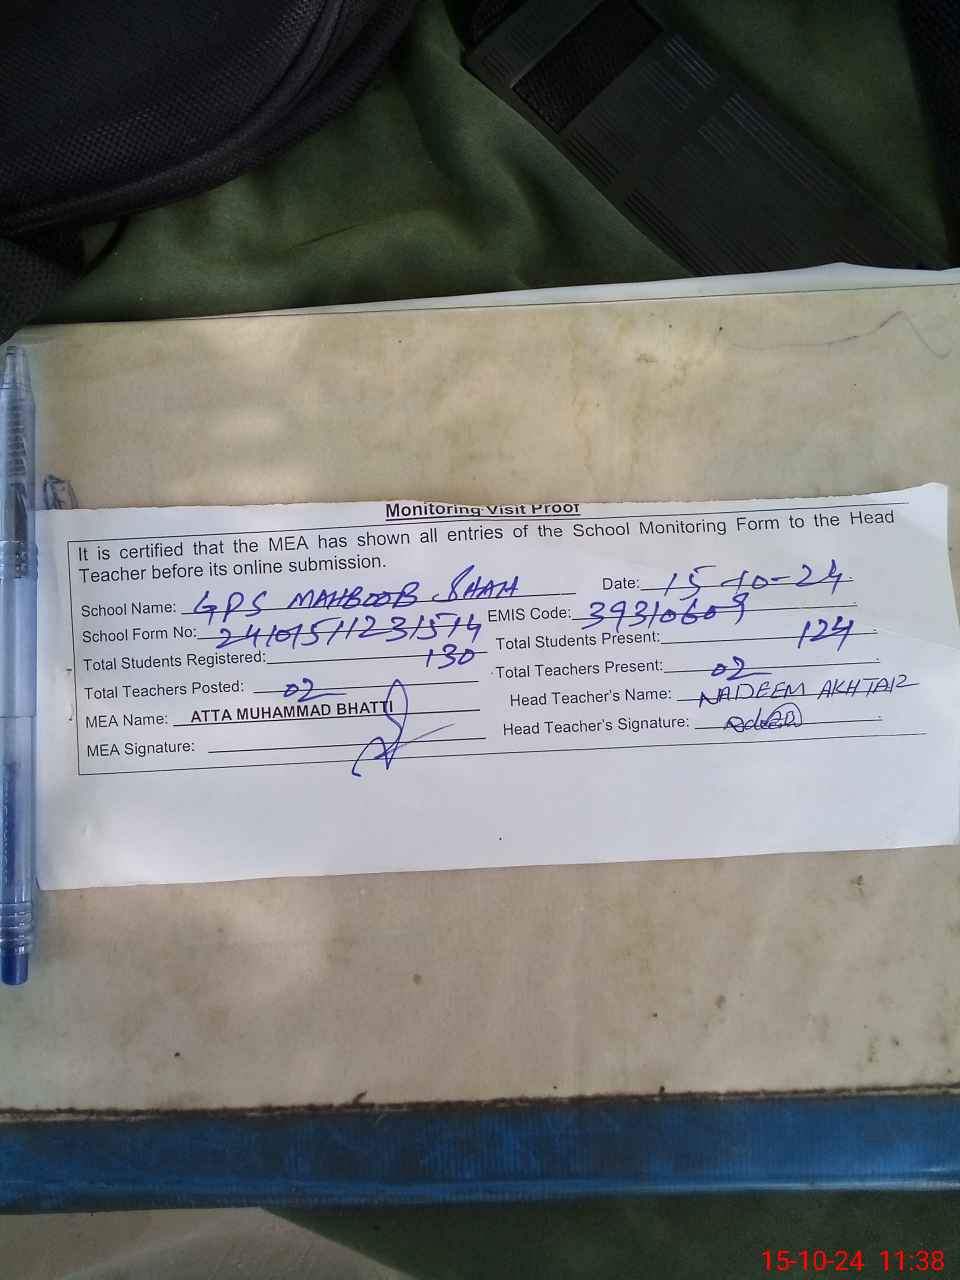 Monitoring Visit Proof
It is certified that the MEA has shown all entries of the School Monitoring Form to the Head
Teacher before its online submission.
School Name: GPS MAHBOOB SHAH Date: 15-10-24
School Form No: 24101511231514 EMIS Code: 39310609
Total Students Registered: 130 Total Students Present: 124
Total Teachers Posted: 02 Total Teachers Present: 02
MEA Name: ATTA MUHAMMAD BHATTI Head Teacher's Name: NADEEM AKHTAR
MEA Signature: Head Teacher's Signature:
15-10-24 11:38